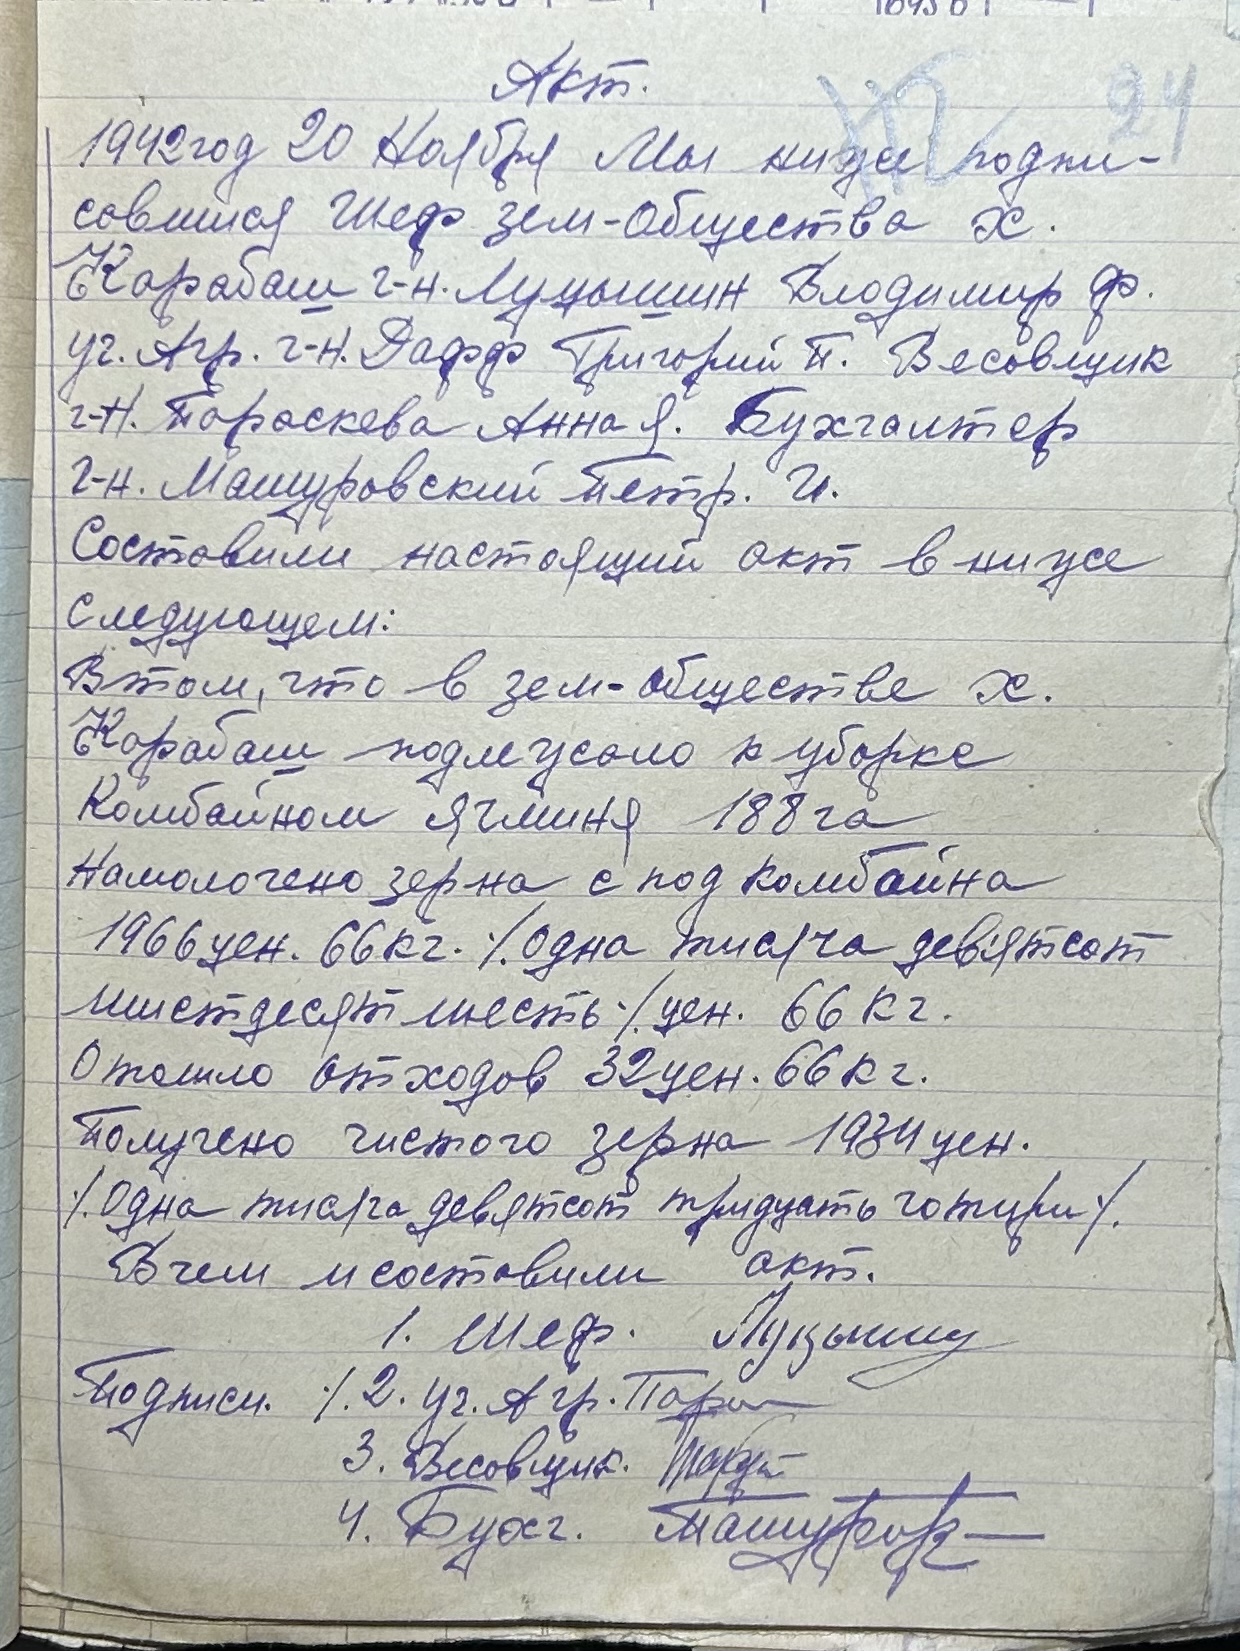 24
Акт.
1942год 20 Ноября Мы ниже подпи-
савшися Шеф зем-общества х.
Карабаш г-н. Луцышин Владимир Ф.
уч. Агр. г-н. Дафф Григорий П. Весовщик
г-н. Параскева Анна Я. Бухгалтер
г-н. Машуровский Петр. И.
Составили настоящий акт в ниже
следующем:
В том, что в зем-обществе х.
Карабаш подлежало к уборке
Комбайном ячминя 188га
Намолочено зерна с под комбайна
1966цен. 66кг. ⁒ Одна тисяча девятсот
шистдесят шесть ⁒ цен. 66 кг.
Отошло отходов 32цен. 66кг.
Получено чистого зерна 1934цен.
⁒ Одна тисяча девятсот тридцать чотири ⁒.
В чем и составили акт.
1. Шеф. Луцышин
Подписи. ⁒ 2. уч. Агр.
3. Весовщик.
4. Бухг. Машуров